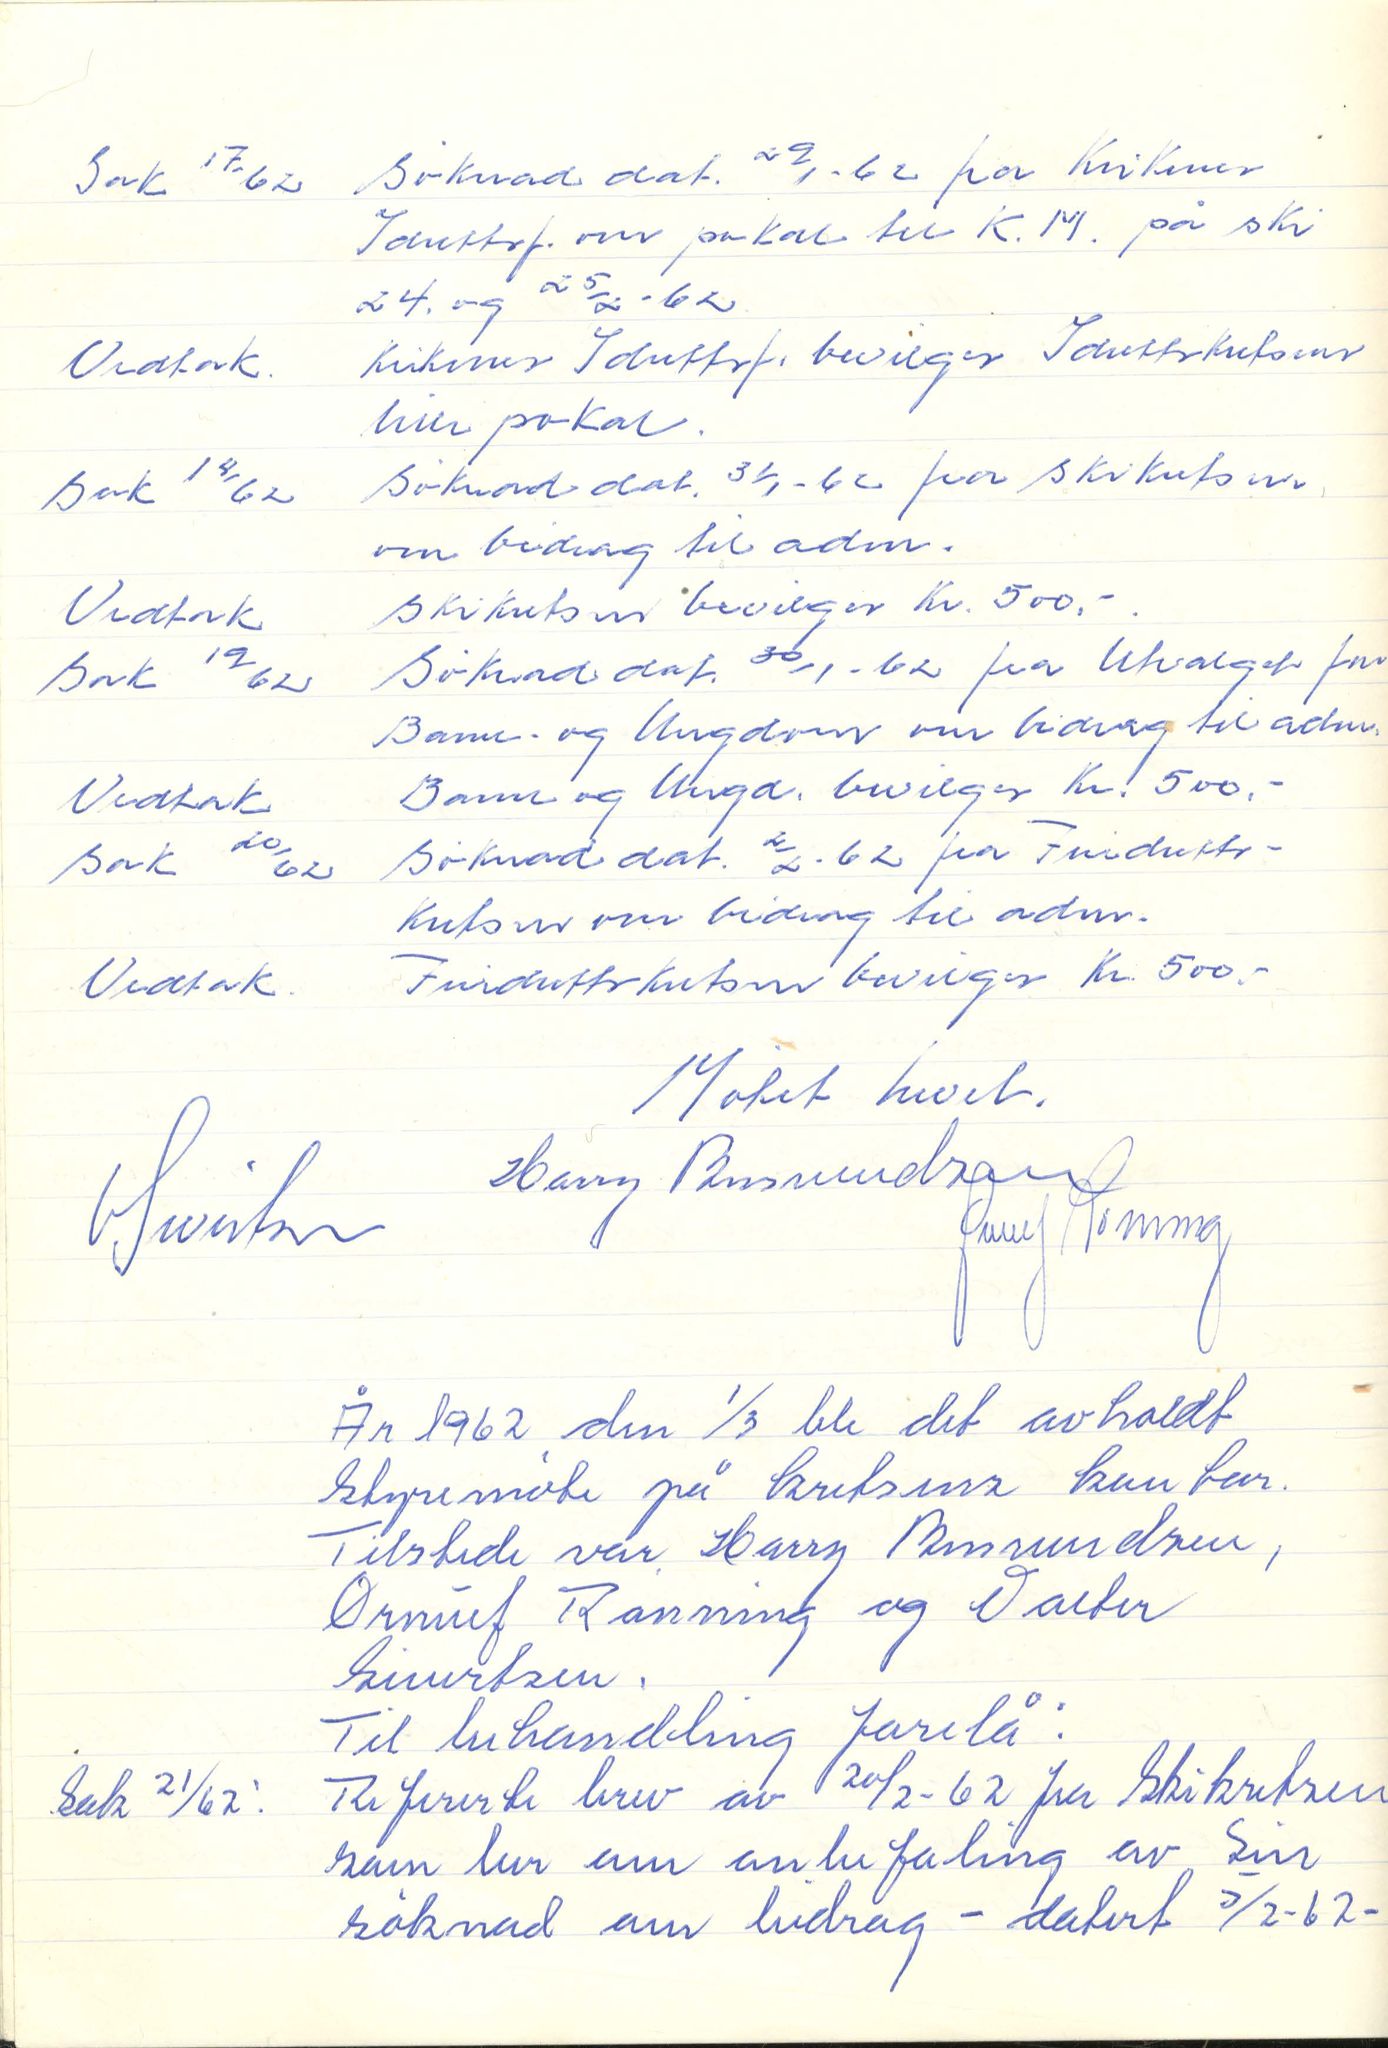 Sak 17/62 Søknad dat. 29/1-62 fra Kirkenes
Idrettsf. om pokal til K.M. på ski
24. og 25/2-62
Vedtak. Kirkenes Idrettsf. bevilges Idrettskretsens
lille pokal.
Sak 18/62 Søknad dat. 31/1-62 fra Skikretsen
om bidrag til adm.
Vedtak Skikretsen bevilges Kr. 500,-.
Sak 19/62 Søknad dat. 30/1-62 fra Utvalget for
Barne- og Ungdom om bidrag til adm.
Vedtak Barne og Ungd. bevilges Kr. 500,-
Sak 20/62 Søknad dat. 2/2-62 fra Friidretts-
kretsen om bidrag til adm.
Vedtak. Friidrettskretsen bevilges Kr. 500,-
Møtet hevet.
Harry
Rønning
År 1962 den 1/3 ble det avholdt
styremöte på kretsens kontor.
Tilstede var Harry
Ørnulf Rønning og Valter
Sivertsen.
Til behandling forelå:
Sak 21/62: Refererte brev av 20/2-62 fra Skikretsen
som ber om anbefaling av sin
söknad om bidrag - datert 5/2-62-